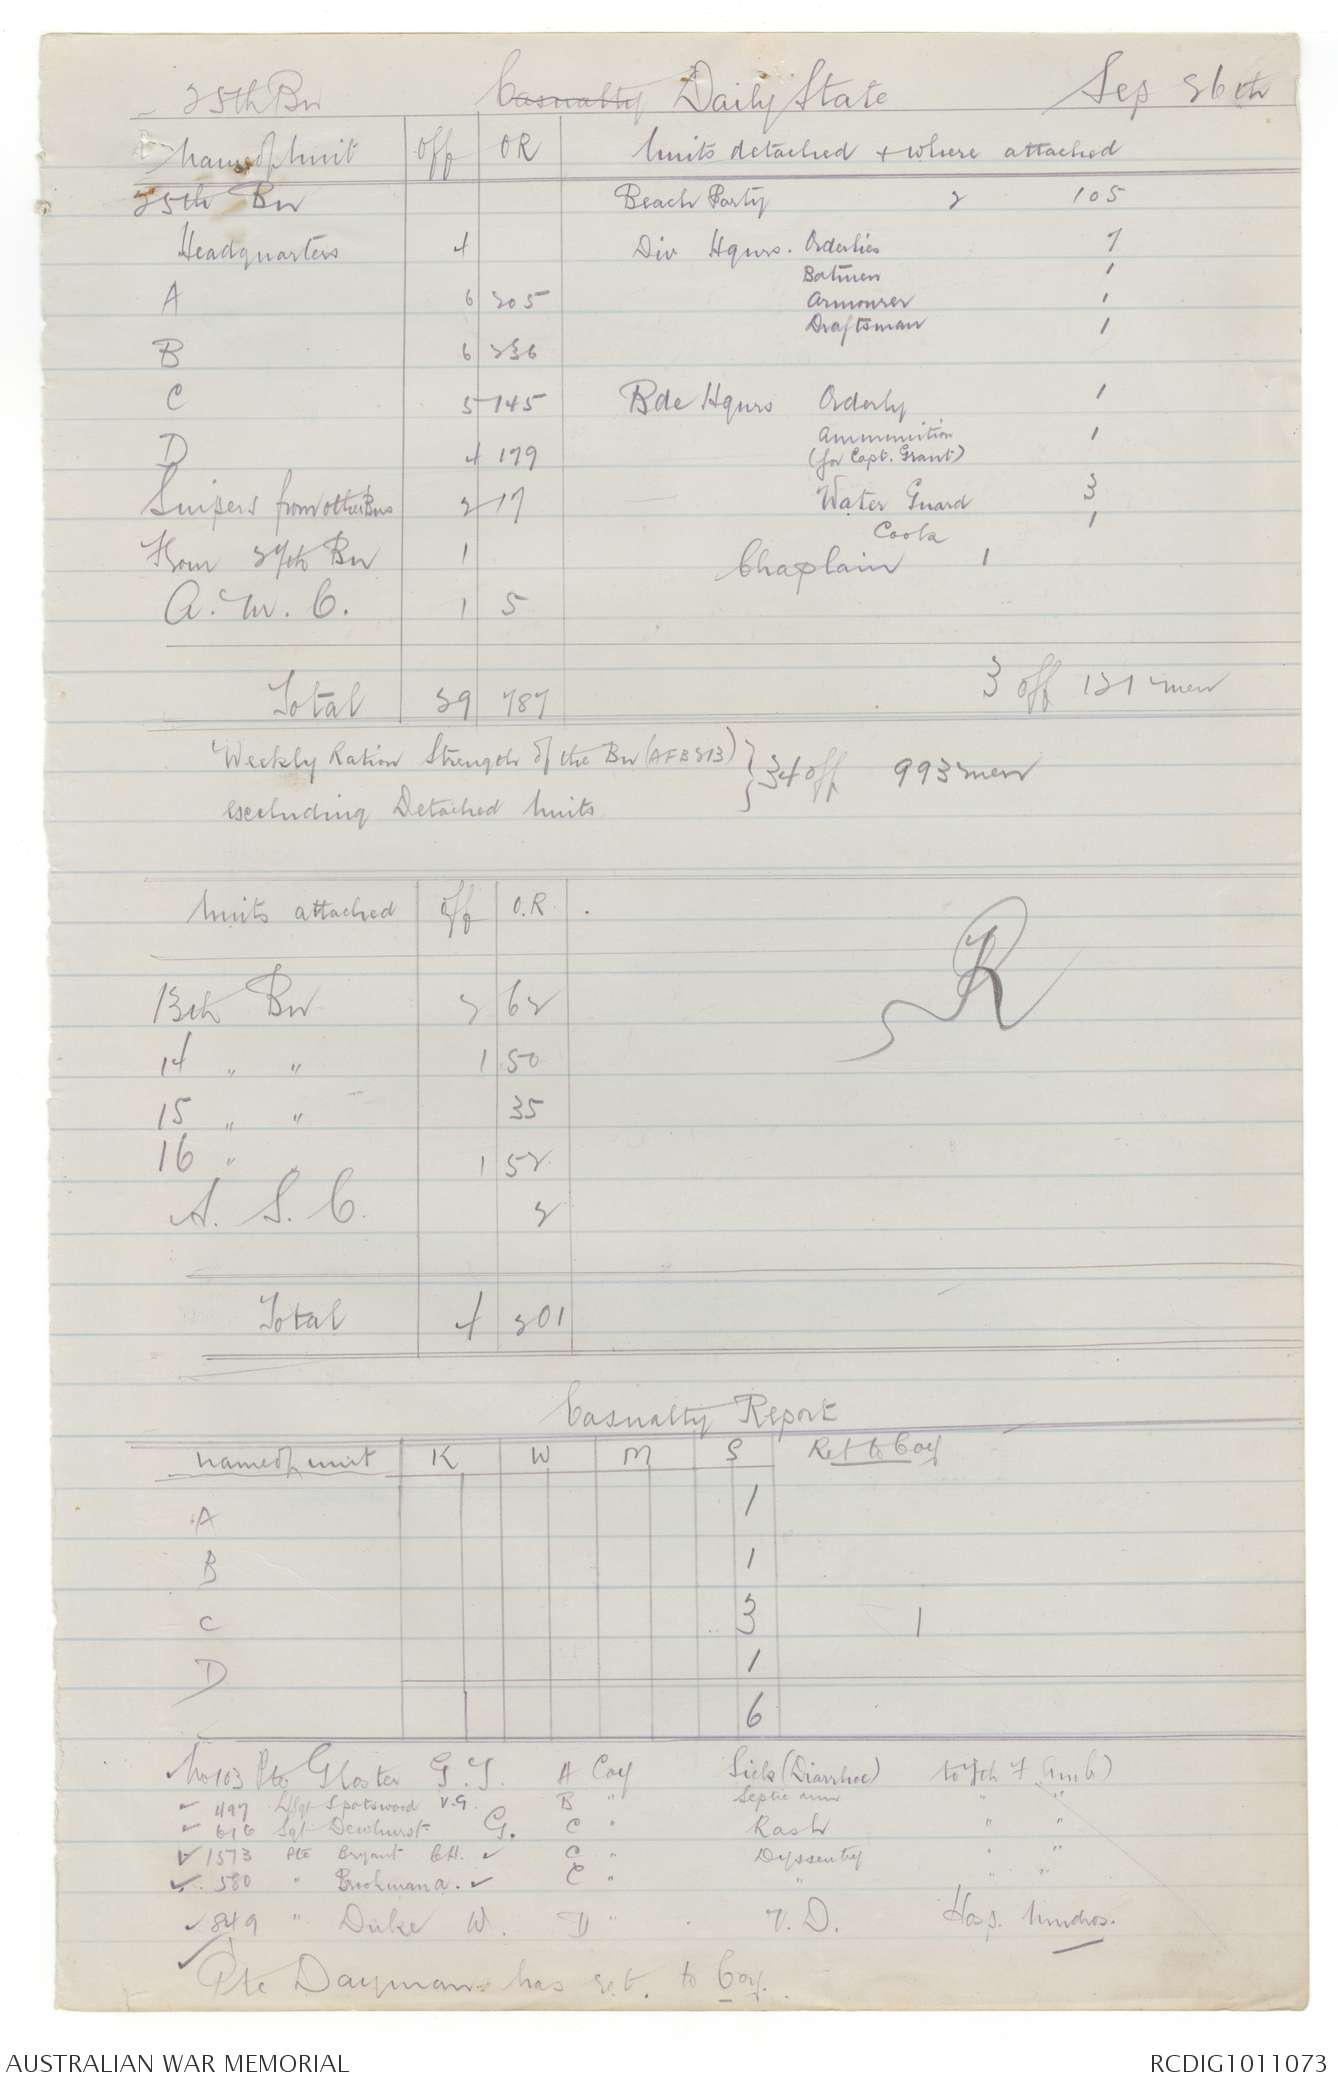 25th Bn Casualty Daily State Sep 26th
Name of Unit Off OR Units detached + where attached
25th Bn Beach Party 2 105
Headquarters 4 Div Hqurs. Orderlies 7
Batmen 1
A 6 205 Armourer 1
Draftsman 1
B 6 236
C 5 145 Bde Hqurs Orderly 1
D 4 179 Ammunition 1
(for Capt. Grant)
Snipers from other Bns 2 17 Water Guard 3
Cook 1
From 27th Bn 1 Chaplain 1
A.M.C. 1 5
Total 29 787 3 off 121 men
Weekly Ration Strength of the Bn (AFB213) } 34 off 993 men
excluding Detached Units
Units attached Off O.R.
13th Bn 2 62
14 " " 1 50
15 " " 35
16 " " 1 52
A.S.C. 2
Total 4 201
Casualty Report
Name of unit K W M S Ret to Coy
A 1
B 1
C 3 1
D 1
6
No 103 Pte Gloster G.T. A Coy Sick (Diarrhoe) to 7th F Amb)
497 L/Sgt Spotswood V.G. B " Septic arm " "
616 Sgt Dewhurst G. C " Rash " "
1573 Pte Bryant C.H. C " Dyssentry " "
580 " Brookman A. C " " " "
849 " Duke W. D " V.D. Hosp. Mudros.
Pte Dayman has ret. to Coy.
AUSTRALIAN WAR MEMORIAL RCDIG1011073